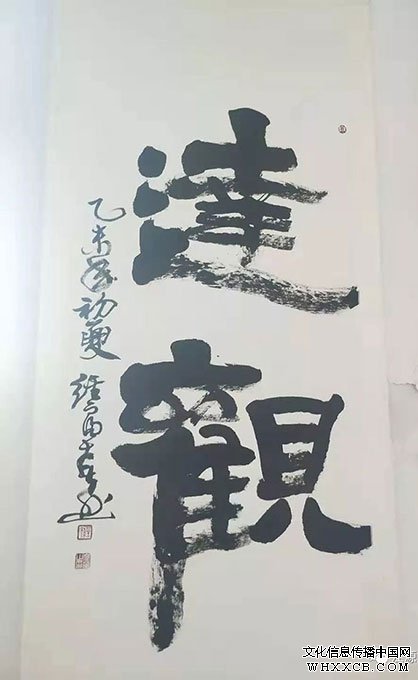 達觀
乙未年初夏
文化信息传播中国网
WHXXCB.COM